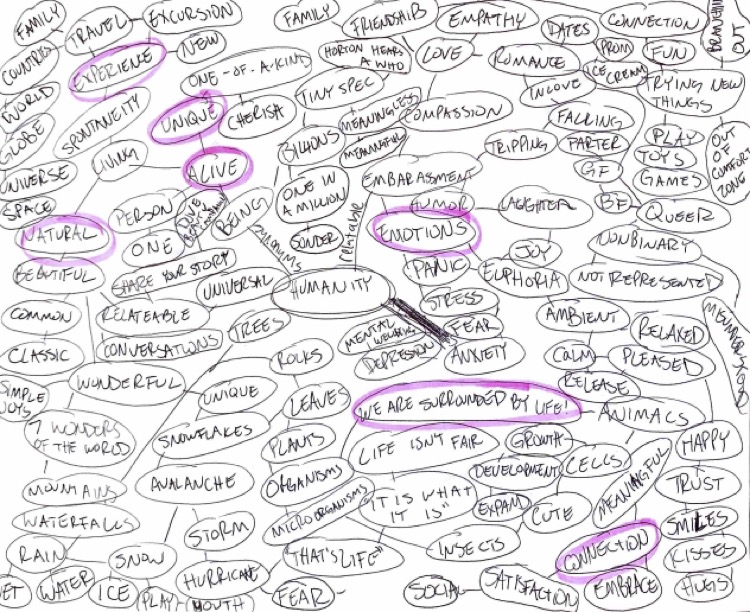 FAMILY
TRAVEL
EXCURSION
FAMILY
FRIENDSHIP
EMPATHY
DATES
CONNECTION
OUT
COUNTRIES
EXPERIENCE
NEW
HORTON HEARS
A WHO
LOVE
ROMANCE
PROM
FUN
ONE-OF-A-KIND
ICE
CREAM
TRYING NEW
THINGS
WORLD
SPONTANEITY
UNIQUE
CHERISH
TINY SPEC
IN LOVE
MEANINGLESS
MEANINGFUL
COMPASSION
FALLING
GLOBE
BILLIONS
TRIPPING
PARTER
PLAY
OUT
OF
COMFORT
ZONE
LIVING
ALIVE
TOYS
UNIVERSE
EMBARASSMENT
GF
GAMES
SPACE
ONE IN
A MILLION
HUMOR
LAUGHTER
BF
QUEER
PERSON
BEING
relatable
NATURAL
ONE
synonyms
SONDER
EMOTIONS
JOY
NONBINARY
BEAUTIFUL
SHARE YOUR STORY
UNIVERSAL
HUMANITY
PANIC
EUPHORIA
NOT REPRESENTED
COMMON
RELATEABLE
STRESS
AMBIENT
CONVERSATIONS
TREES
MENTAL
FEAR
RELAXED
CLASSIC
ROCKS
DEPRESSION
ANXIETY
CALM
PLEASED
SIMPLE
JOYS
WONDERFUL
UNIQUE
LEAVES
RELEASE
WE ARE SURROUNDED BY LIFE!
ANIMALS
7 WONDERS
OF THE WORLD
SNOWFLAKES
PLANTS
LIFE ISN'T FAIR
GROWTH
HAPPY
DEVELOPMENT
CELLS
MEANINGFUL
MOUNTAINS
AVALANCHE
ORGANISMS
"IT IS WHAT
IT IS"
EXPAND
CUTE
TRUST
WATERFALLS
MICROORGANISMS
STORM
SMILES
RAIN
SNOW
"THAT'S LIFE"
INSECTS
CONNECTION
KISSES
WATER
ICE
PLAY
HURRICANE
MOUTH
FEAR
SOCIAL
SATISFACTION
EMBRACE
HUGS